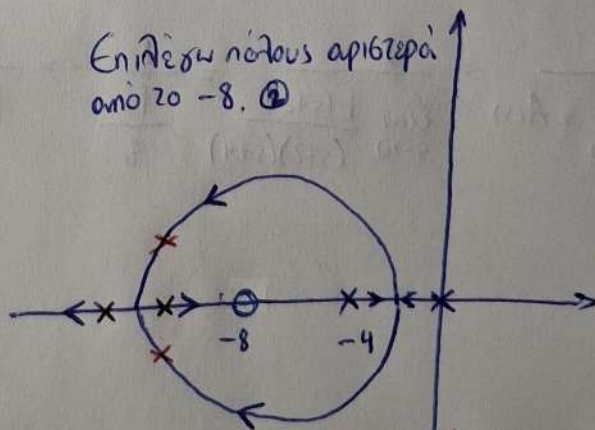 Επιλέγω πόλους αριστερά
από το -8. ②
-8
-4